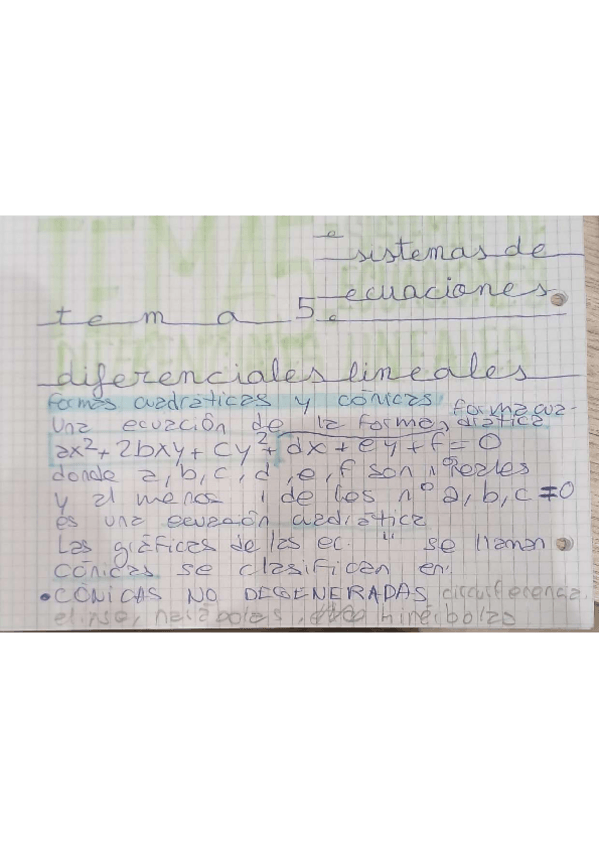 sistemas de
tema 5: ecuaciones
diferenciales lineales
formas cuadráticas y cónicas
una ecuación de la forma, forma cua-
drática
ax²+2bxy+cy²+dx+ey+f=0
donde a,b,c,d,e,f son nºs reales
y al menos 1 de los nº a,b,c≠0
es una ecuación cuadrática
Las gráficas de las ec. " se llaman
cónicas se clasifican en:
• CÓNICAS NO DEGENERADAS circunferencia,
elipse, parábolas, hipérbolas